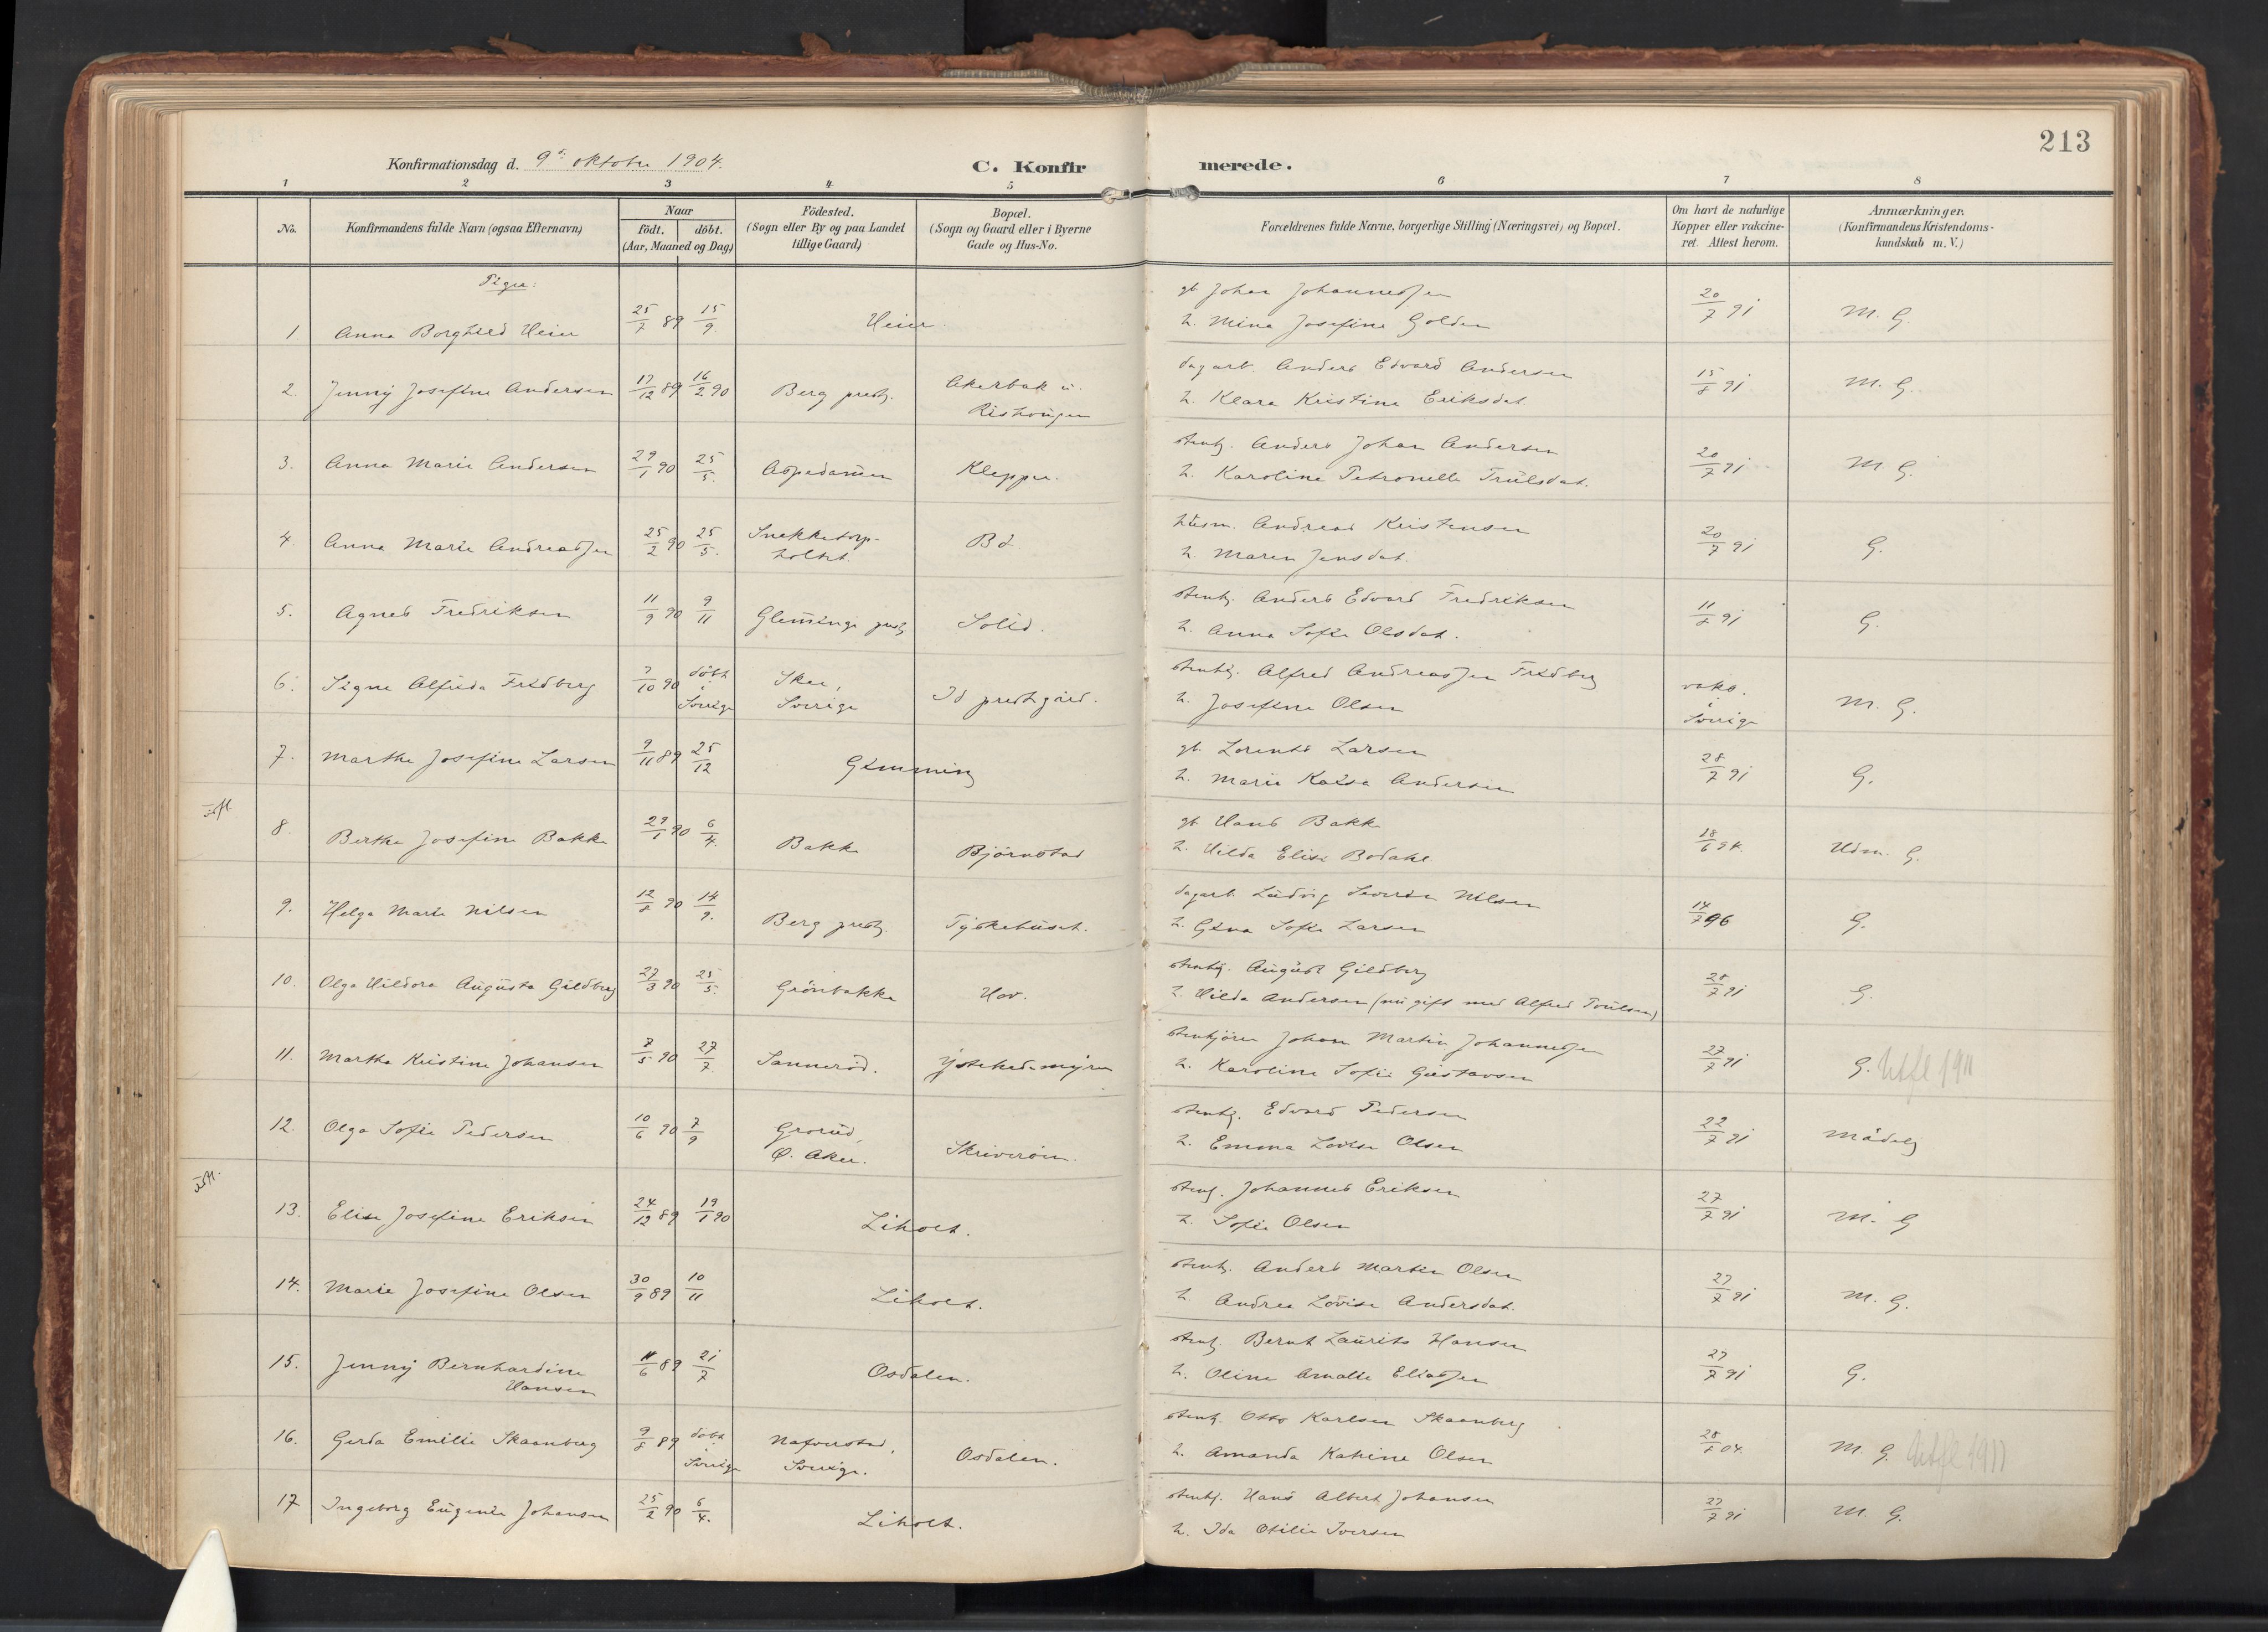 213
Konfirmationsdag d. 9de oktobr 1904.
C. Konfirmerede.
1 2 3 4 5 6 7 8
No.
Konfirmandens fulde Navn (ogsaa Efternavn)
Naar
födt. döbt.
(Aar, Maaned og Dag)
Födested.
(Sogn eller By og paa Landet
tillige Gaard)
Bopæl.
(Sogn og Gaard eller i Byerne
Gade og Hus-No.
Forældrenes fulde Navne, borgerlige Stilling (Næringsvei) og Bopæl.
Om havt de naturlige
Kopper eller vakcine-
ret. Attest herom.
Anmærkninger.
(Konfirmandens Kristendoms-
kundskab m. V.)
Piger:
1 Anna Borghild Heier 25/7 89 15/9. Heier. gb. Johan Johannessen 20/7 91 M. G.
h. Mina Josefine Golden
2. Jenny Josefine Andersen 17/12 89 16/2 90 Berg prestg. Akerbak u. dagarb. Anders Edvard Andersen 15/8 91 M. G.
Rishaugen h. Klara Kristine Eriksdat.
3. Anna Marie Andersen 29/1 90 25/5. Aspedamen Kleppu. stenh. Anders Johan Andersen 20/7 91 M. G.
h. Karoline Petronelle Trulsdat.
4. Anna Marie Andreassen 25/2 90 25/5. Snekketorp- Bd husm. Andreas Kristensen 20/7 91 G.
holtet. h. Maren Jensdat.
5. Agnes Fredriksen 11/9 90 9/11 Glemminge prstg. Solid. stenh. Anders Edvard Fredriksen 11/8 91 G.
h. Anna Sofie Olsdat.
6. Signe Alfrida Fridberg 7/10 90 döbt i Sverige Skee, Sverige Id prestgård. stenh. Alfred Andreassen Fridberg vaks. i Sverige M. G.
h. Josefine Olsen
7. Marthe Josefine Larsen 9/11 89 25/12 Gimming gb. Lorents Larsen 28/7 91 G.
h. Marie Kaisa Andersen
utfl.
8. Berthe Josefine Bakke 29/1 90 6/4. Bakke Björnstad gb. Hans Bakke 18/6 94. Udm. G.
h. Hilda Elise Bodahl
9. Helga Marie Nilsen 12/8 90 14/9. Berg prestg. Tyskehuset. dagarb. Ludvig Severin Nilsen 14/7 96 G.
h. Gina Sofie Larsen
10. Olga Hildora Augusta Gildberg 27/3 90 25/5. Grönbakke Hov. stenh. August Gildberg 28/7 91 G.
h. Hilda Andersen (nu gift med Alfred Trulsen)
11. Martha Kristine Johansen 7/5 90 27/7. Sannerød. Ystehedemyren stenhjörer Johan Martin Johannessen 27/7 91 G. Utfl 1911
h. Karoline Sofie Gustavsen
12. Olga Sofie Pedersen 10/6 90 7/9 Grorud, stenh. Edvard Pedersen 22/7 91 Mådelg
Ø. Aker. Skriverøen. h. Emma Lovise Olsen
utfl.
13. Elise Josefine Eriksen 24/12 89 19/1 90 Liholt. stenh. Johannes Eriksen 27/7 91 M. G
h. Sofie Olsen
14. Marie Josefine Olsen 30/9 89 10/11 Liholt. stenh. Anders Martin Olsen 27/7 91 M. G.
h. Andrea Lovise Andersdat.
15. Jenny Bernhardine 11/6 89 21/7 Osdalen. stenh. Bernt Laurits Hansen 27/7 91 G.
Hansen h. Oline Amalie Eliassen
16. Gerda Emilie Skaanberg 9/8 89 döbt i Sverige Naverstad, Sverige. Osdalen. stenh. Otto Karlsen Skaanberg 28/8 04. M. G. Utfl 1911
h. Amanda Katrine Olsen
17 Ingeborg Eugenie Johansen 25/2 90 6/4. Liholt. stenh. Hans Albert Johansen 27/7 91 M. G.
h. Ida Otilie Iversen